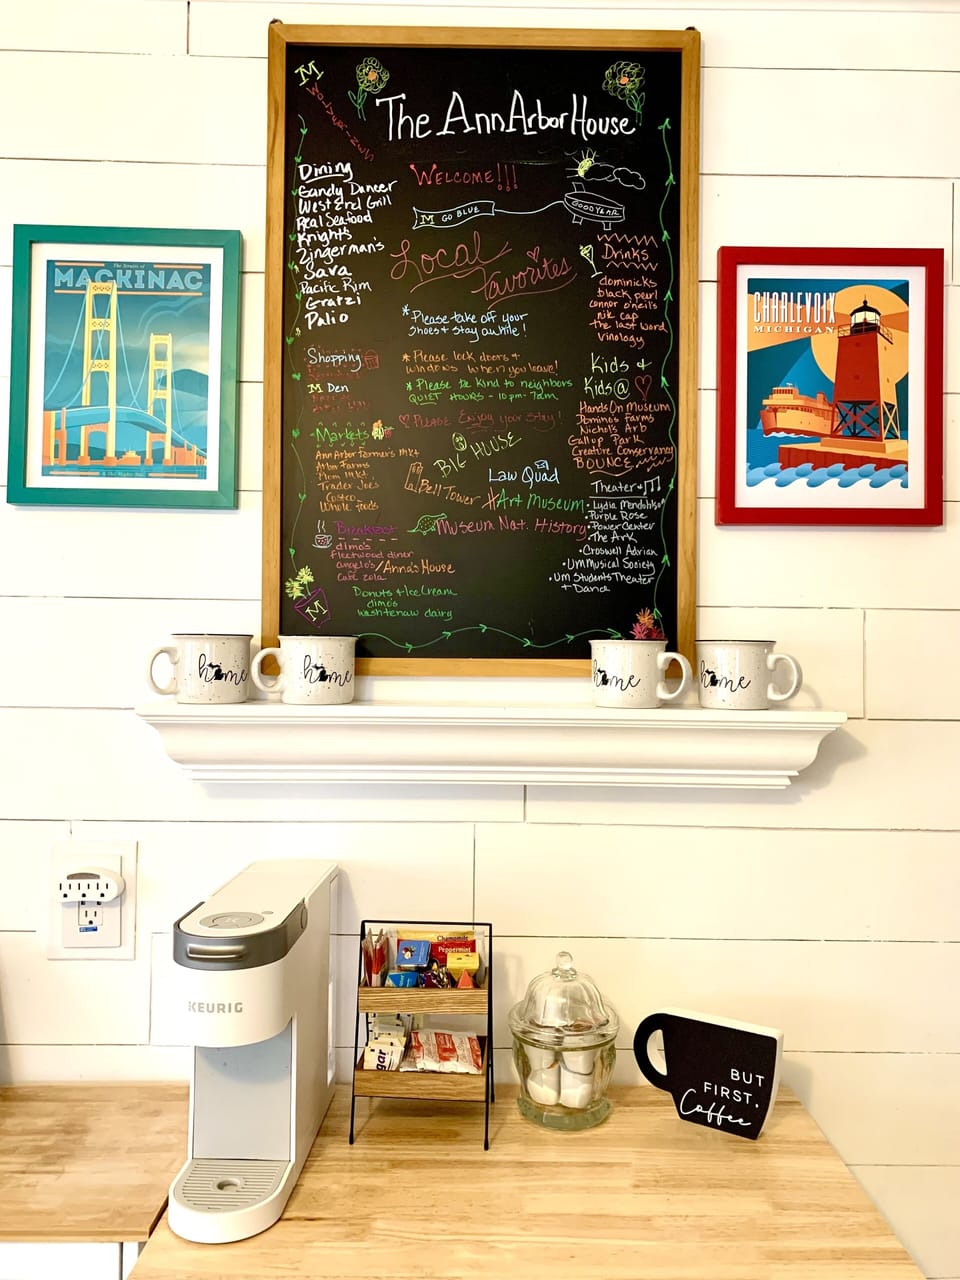 M
WOLVERINES
The Ann Arbor House
WELCOME!!!
M GO BLUE
GOODYEAR
Local
favorites
Dining
Gandy Dancer
West End Grill
Real Seafood
Knights
Zingerman's
Sava
Pacific Rim
Gratzi
Palio
Shopping
M Den
Markets
Ann Arbor Farmer's Mkt
Arbor Farms
Mom Mkt
Trader Joe's
Costco
Whole foods
Breakfast
dimo's
fleetwood diner
angelo's/Anna's House
cafe zola
Donuts + Ice Cream
dimo's
washtenaw dairy
M
*Please take off your
shoes + stay awhile!
*Please lock doors +
windows when you leave!
*Please be kind to neighbors
QUIET HOURS - 10pm-7am
Please Enjoy your stay!
BIG HOUSE
Law Quad
Bell Tower
Art Museum
Museum Nat. History
Drinks
dominicks
black pearl
connor o'neil's
nik cap
the last word
vinology
Kids +
Kids@
Hands On Museum
Domino's Farms
Nichols Arb
Gallop Park
Creature Conservancy
BOUNCE
Theater +
• Lydia Mendohlson
• Purple Rose
• Power Center
• The Ark
• Croswell Adrian
• UM Musical Society
• Um Students Theater
+ Dance
The Straits of
MACKINAC
CHARLEVOIX
MICHIGAN
home
home
home
home
KEURIG
Chamomile
Peppermint
BUT
FIRST,
Coffee